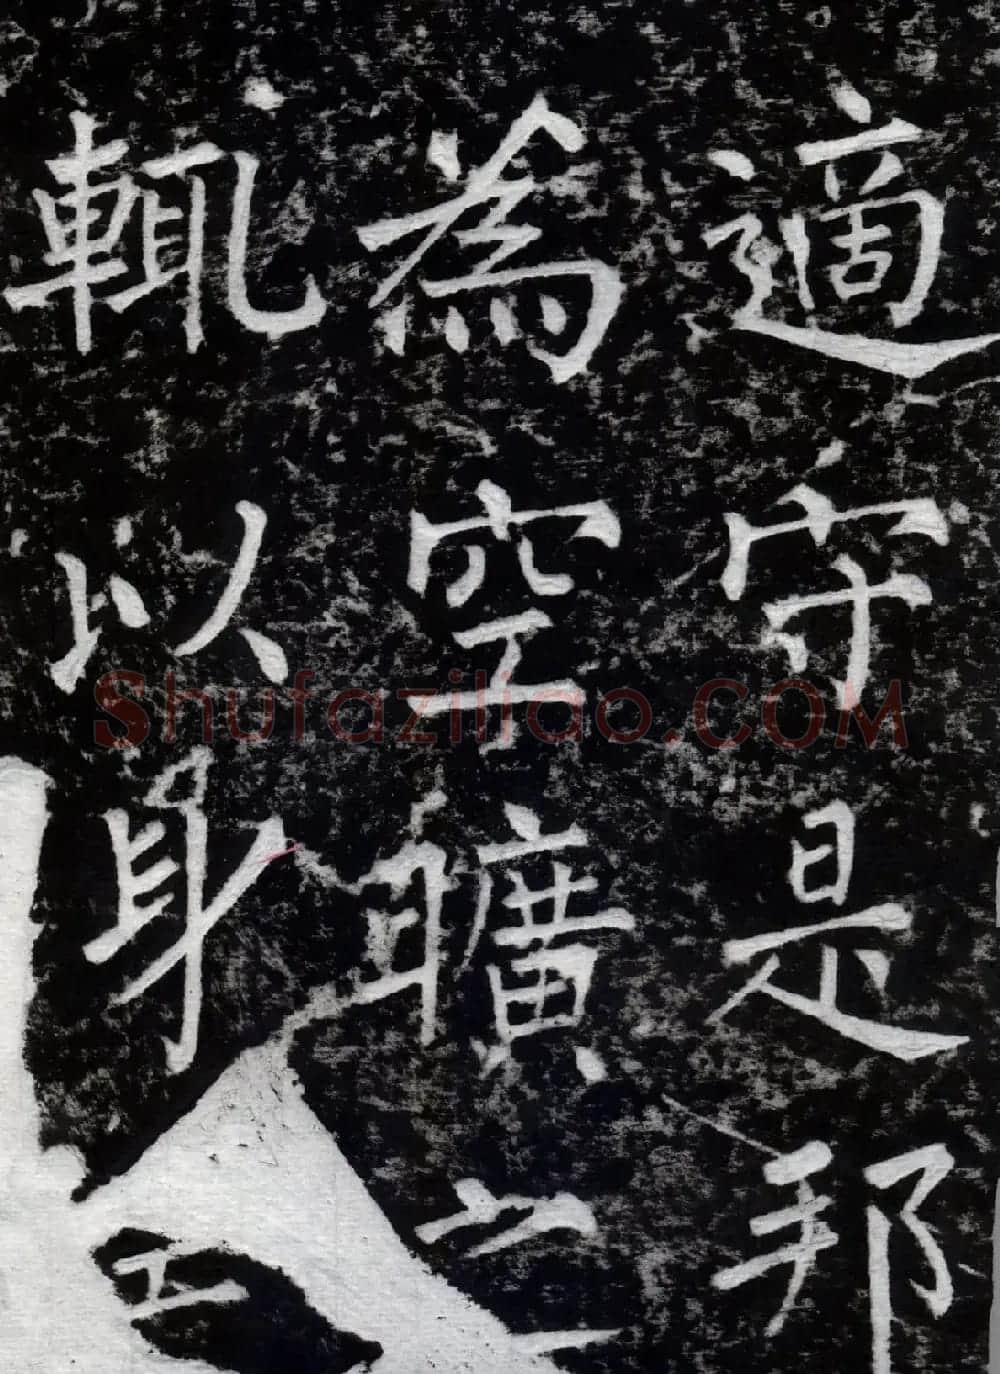 適守是邦
為空曠
輒以身
Shufaziliao.COM